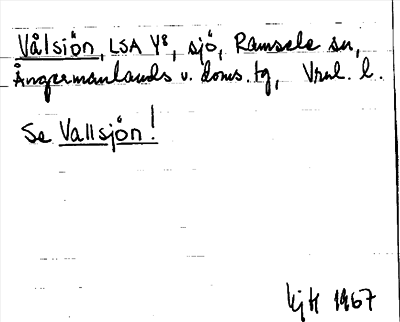 Vålsjön, LSA Y8, sjö, Ramsele sn,
Ångermanlands v. doms. tg, Vrnl. l.
Se Vallsjön!
KjH 1967